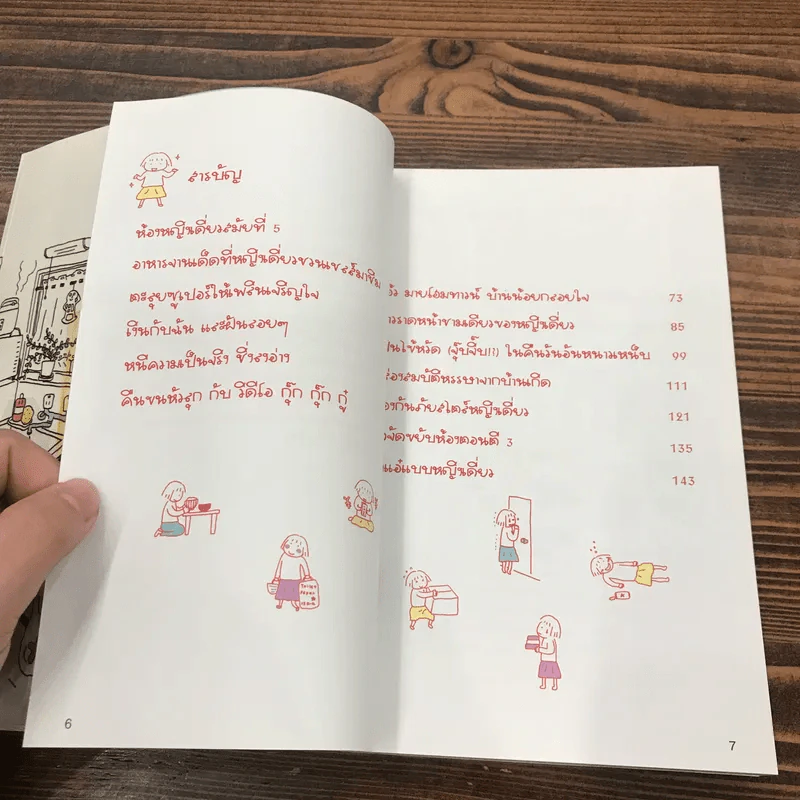 สารบัญ
ห้องหญิงเดี่ยวสมัยที่ 5
อาหารจานเด็ดที่หญิงเดี่ยวชวนเชลล์มาชิม
ตะลุยซูเปอร์ให้เพลินเจริญใจ
เงินกับฉัน และฝันลอยๆ
หนีความเป็นจริง ชิ่งลาอ่าง
คืนขนหัวลุก กับ วิดีโอ กุ๊ก กุ๊ก กู๋
6
มายโฮมทาวน์ บ้านน้อยกลอยใจ 73
ราดหน้าชามเดียวของหญิงเดี่ยว 85
ไข้หวัด (จุ๊บจิ๊บ!!) ในคืนวันอันหนาวเหน็บ 99
สมบัติหรรษาจากบ้านเกิด 111
กันภัยสไตล์หญิงเดี่ยว 121
จัดขยับห้องตอนตี 3 135
แบบหญิงเดี่ยว 143
7